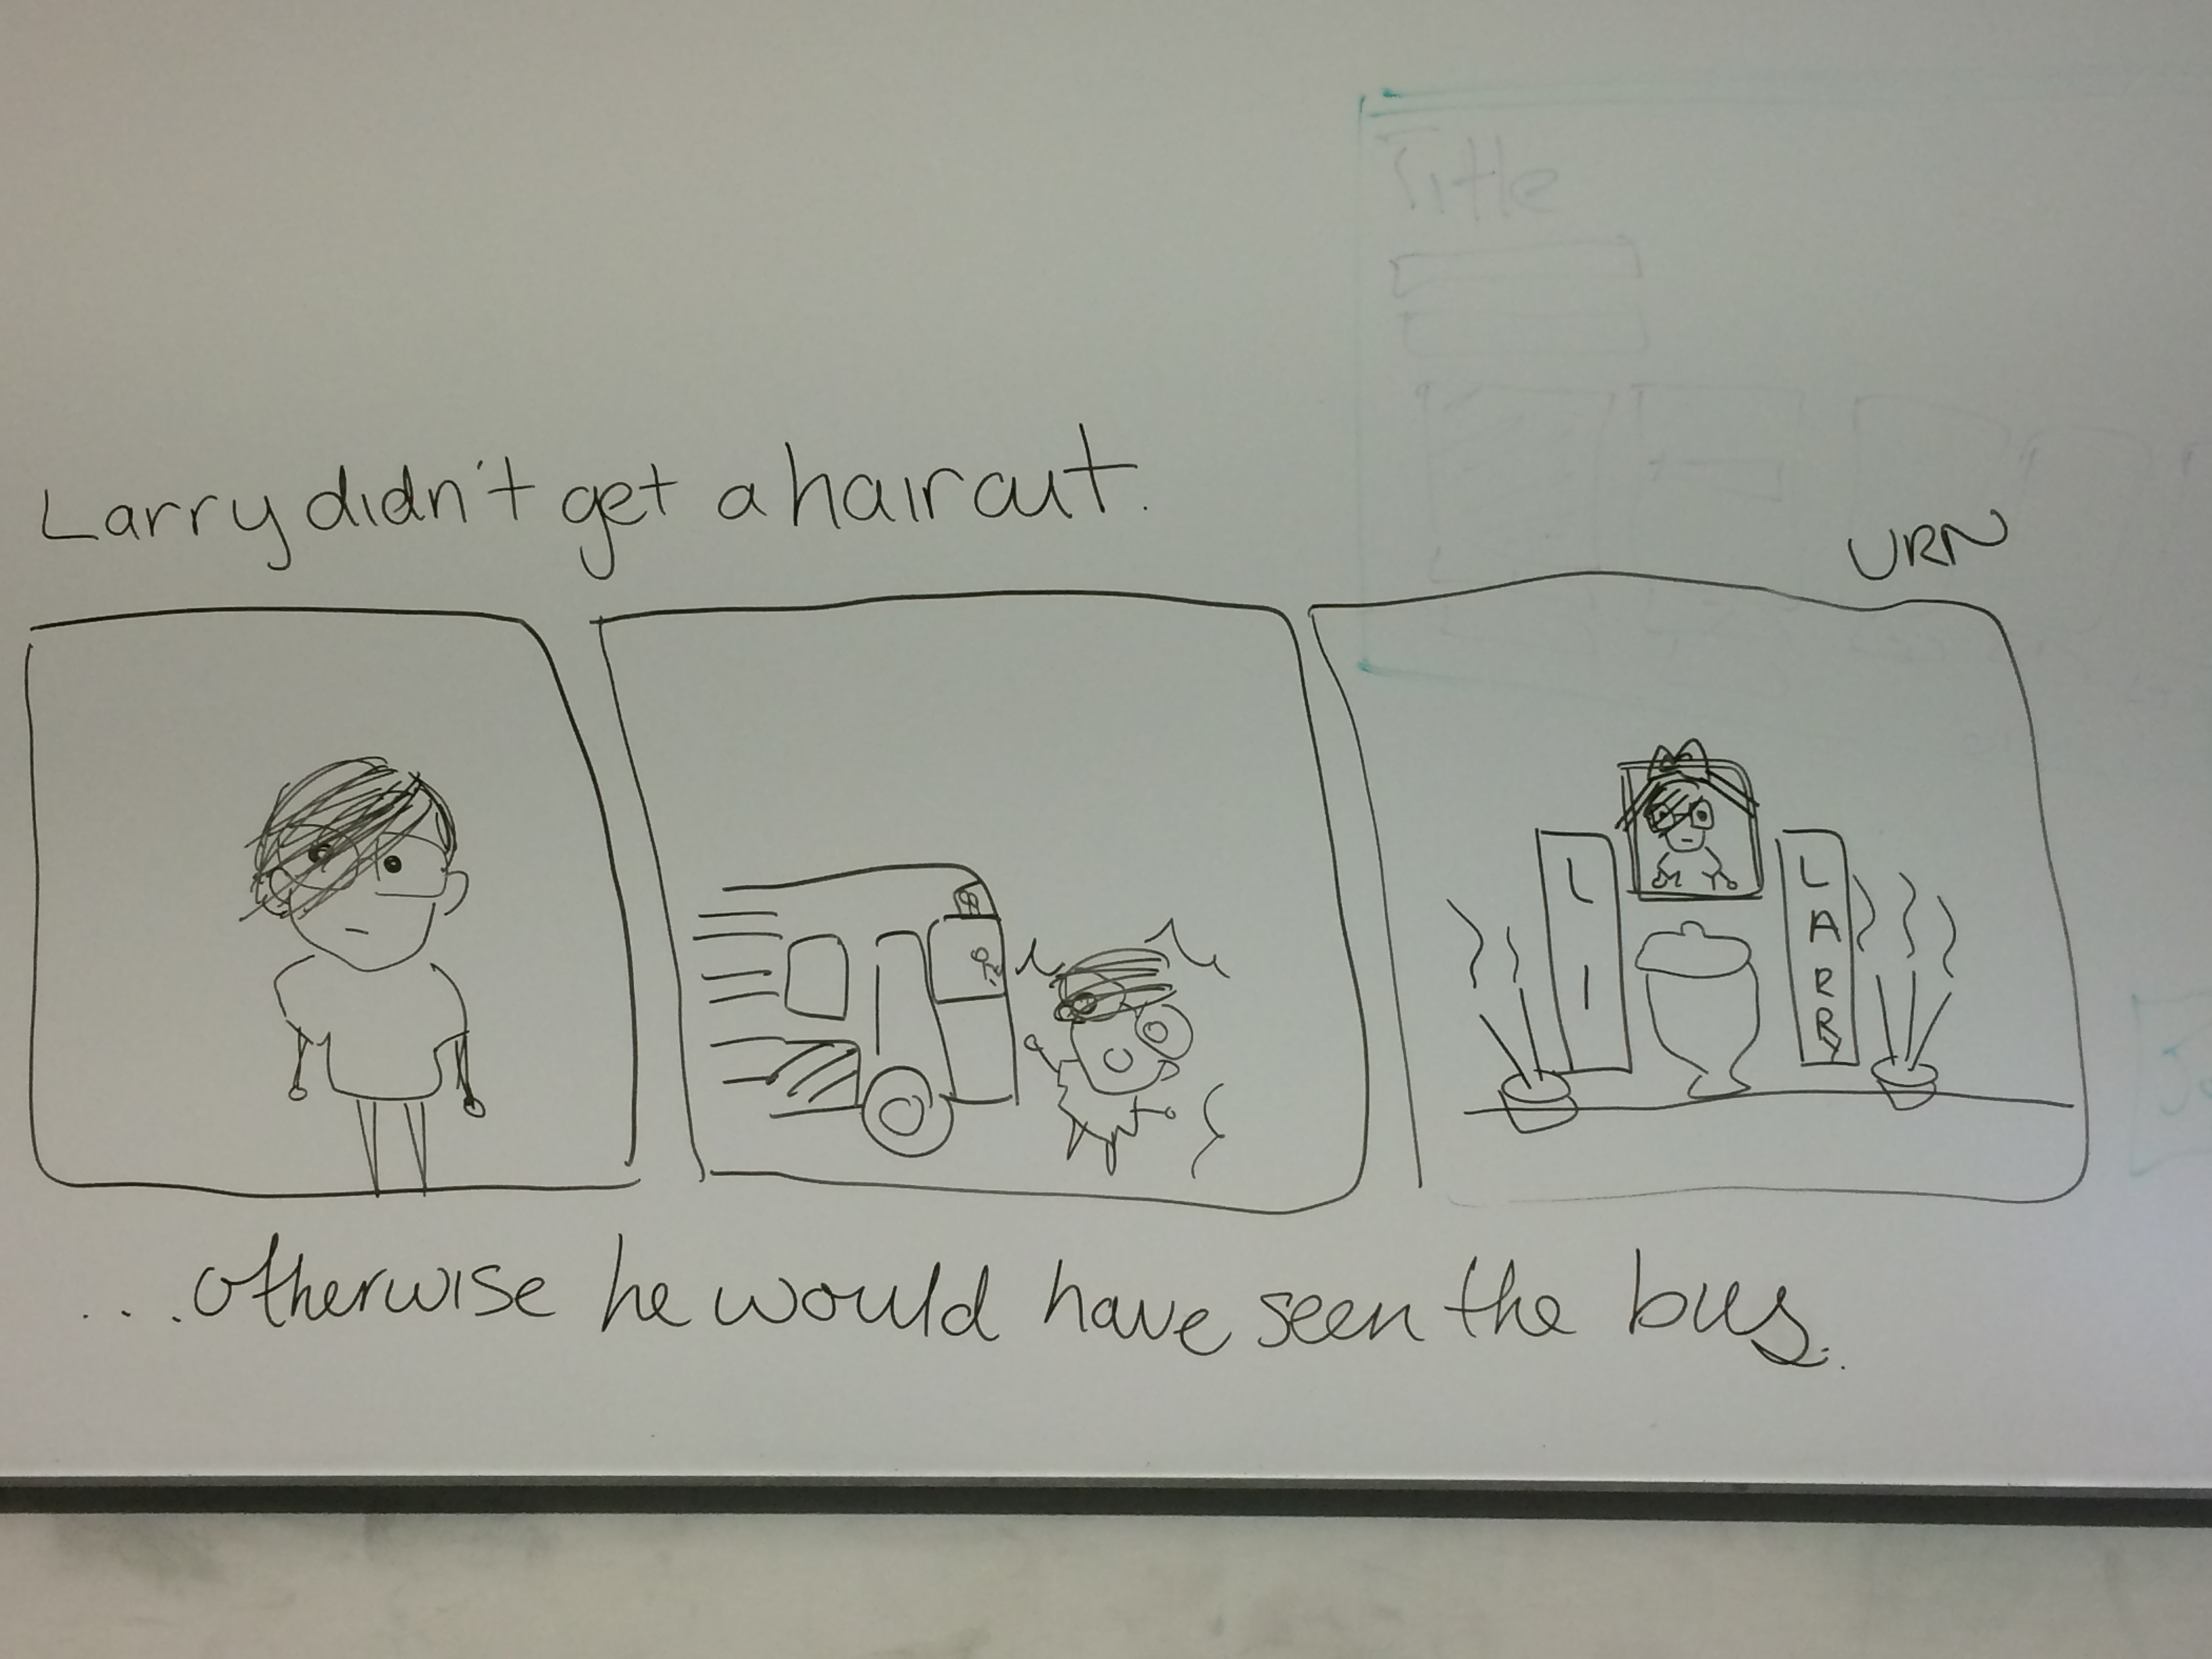 Title
Larry didn't get a haircut.
URN
L I
LARRY
...otherwise he would have seen the bus.